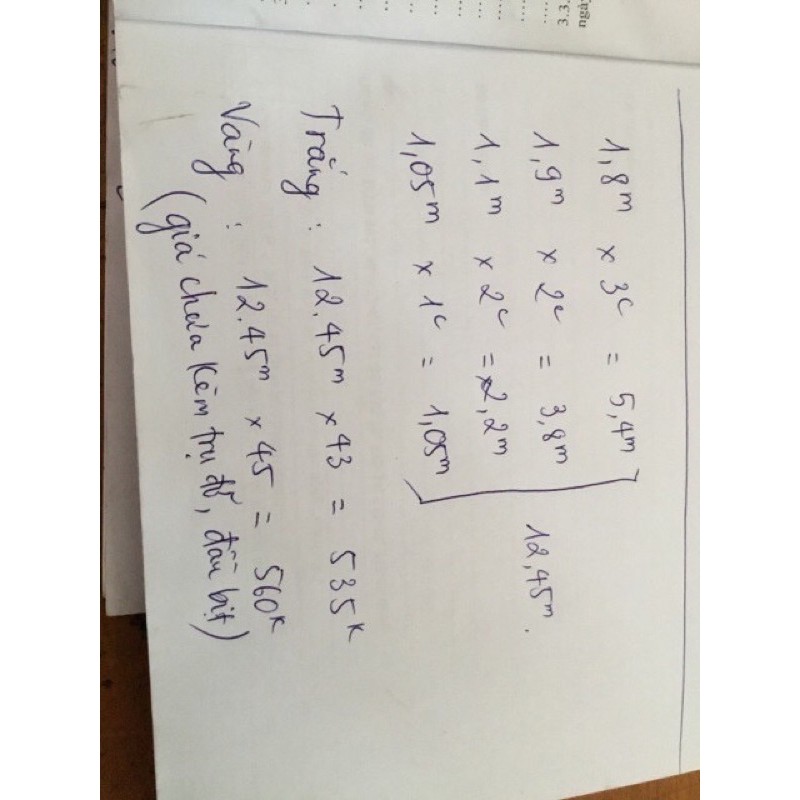 3.3.
ngày
1,8m x 3c = 5,4m
1,9m x 2c = 3,8m
1,1m x 2c = 2,2m
1,05m x 1c = 1,05m
12,45m.
Trắng : 12.45m x 43 = 535k
Vàng : 12.45m x 45 = 560k
(giá chưa kèm trụ đỡ, đầu bịt)